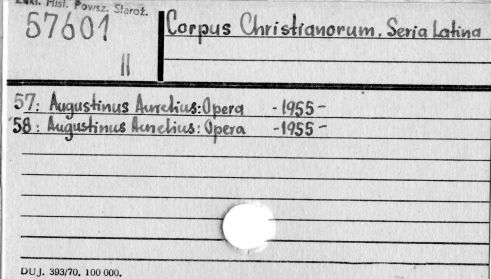 Zakł. Hist. Powsz. Staroż.
57601
II
Corpus Christianorum, Seria Latina
57: Augustinus Aurelius: Opera - 1955 -
58: Augustinus Aurelius: Opera - 1955 -
DUJ. 393/70. 100 000.